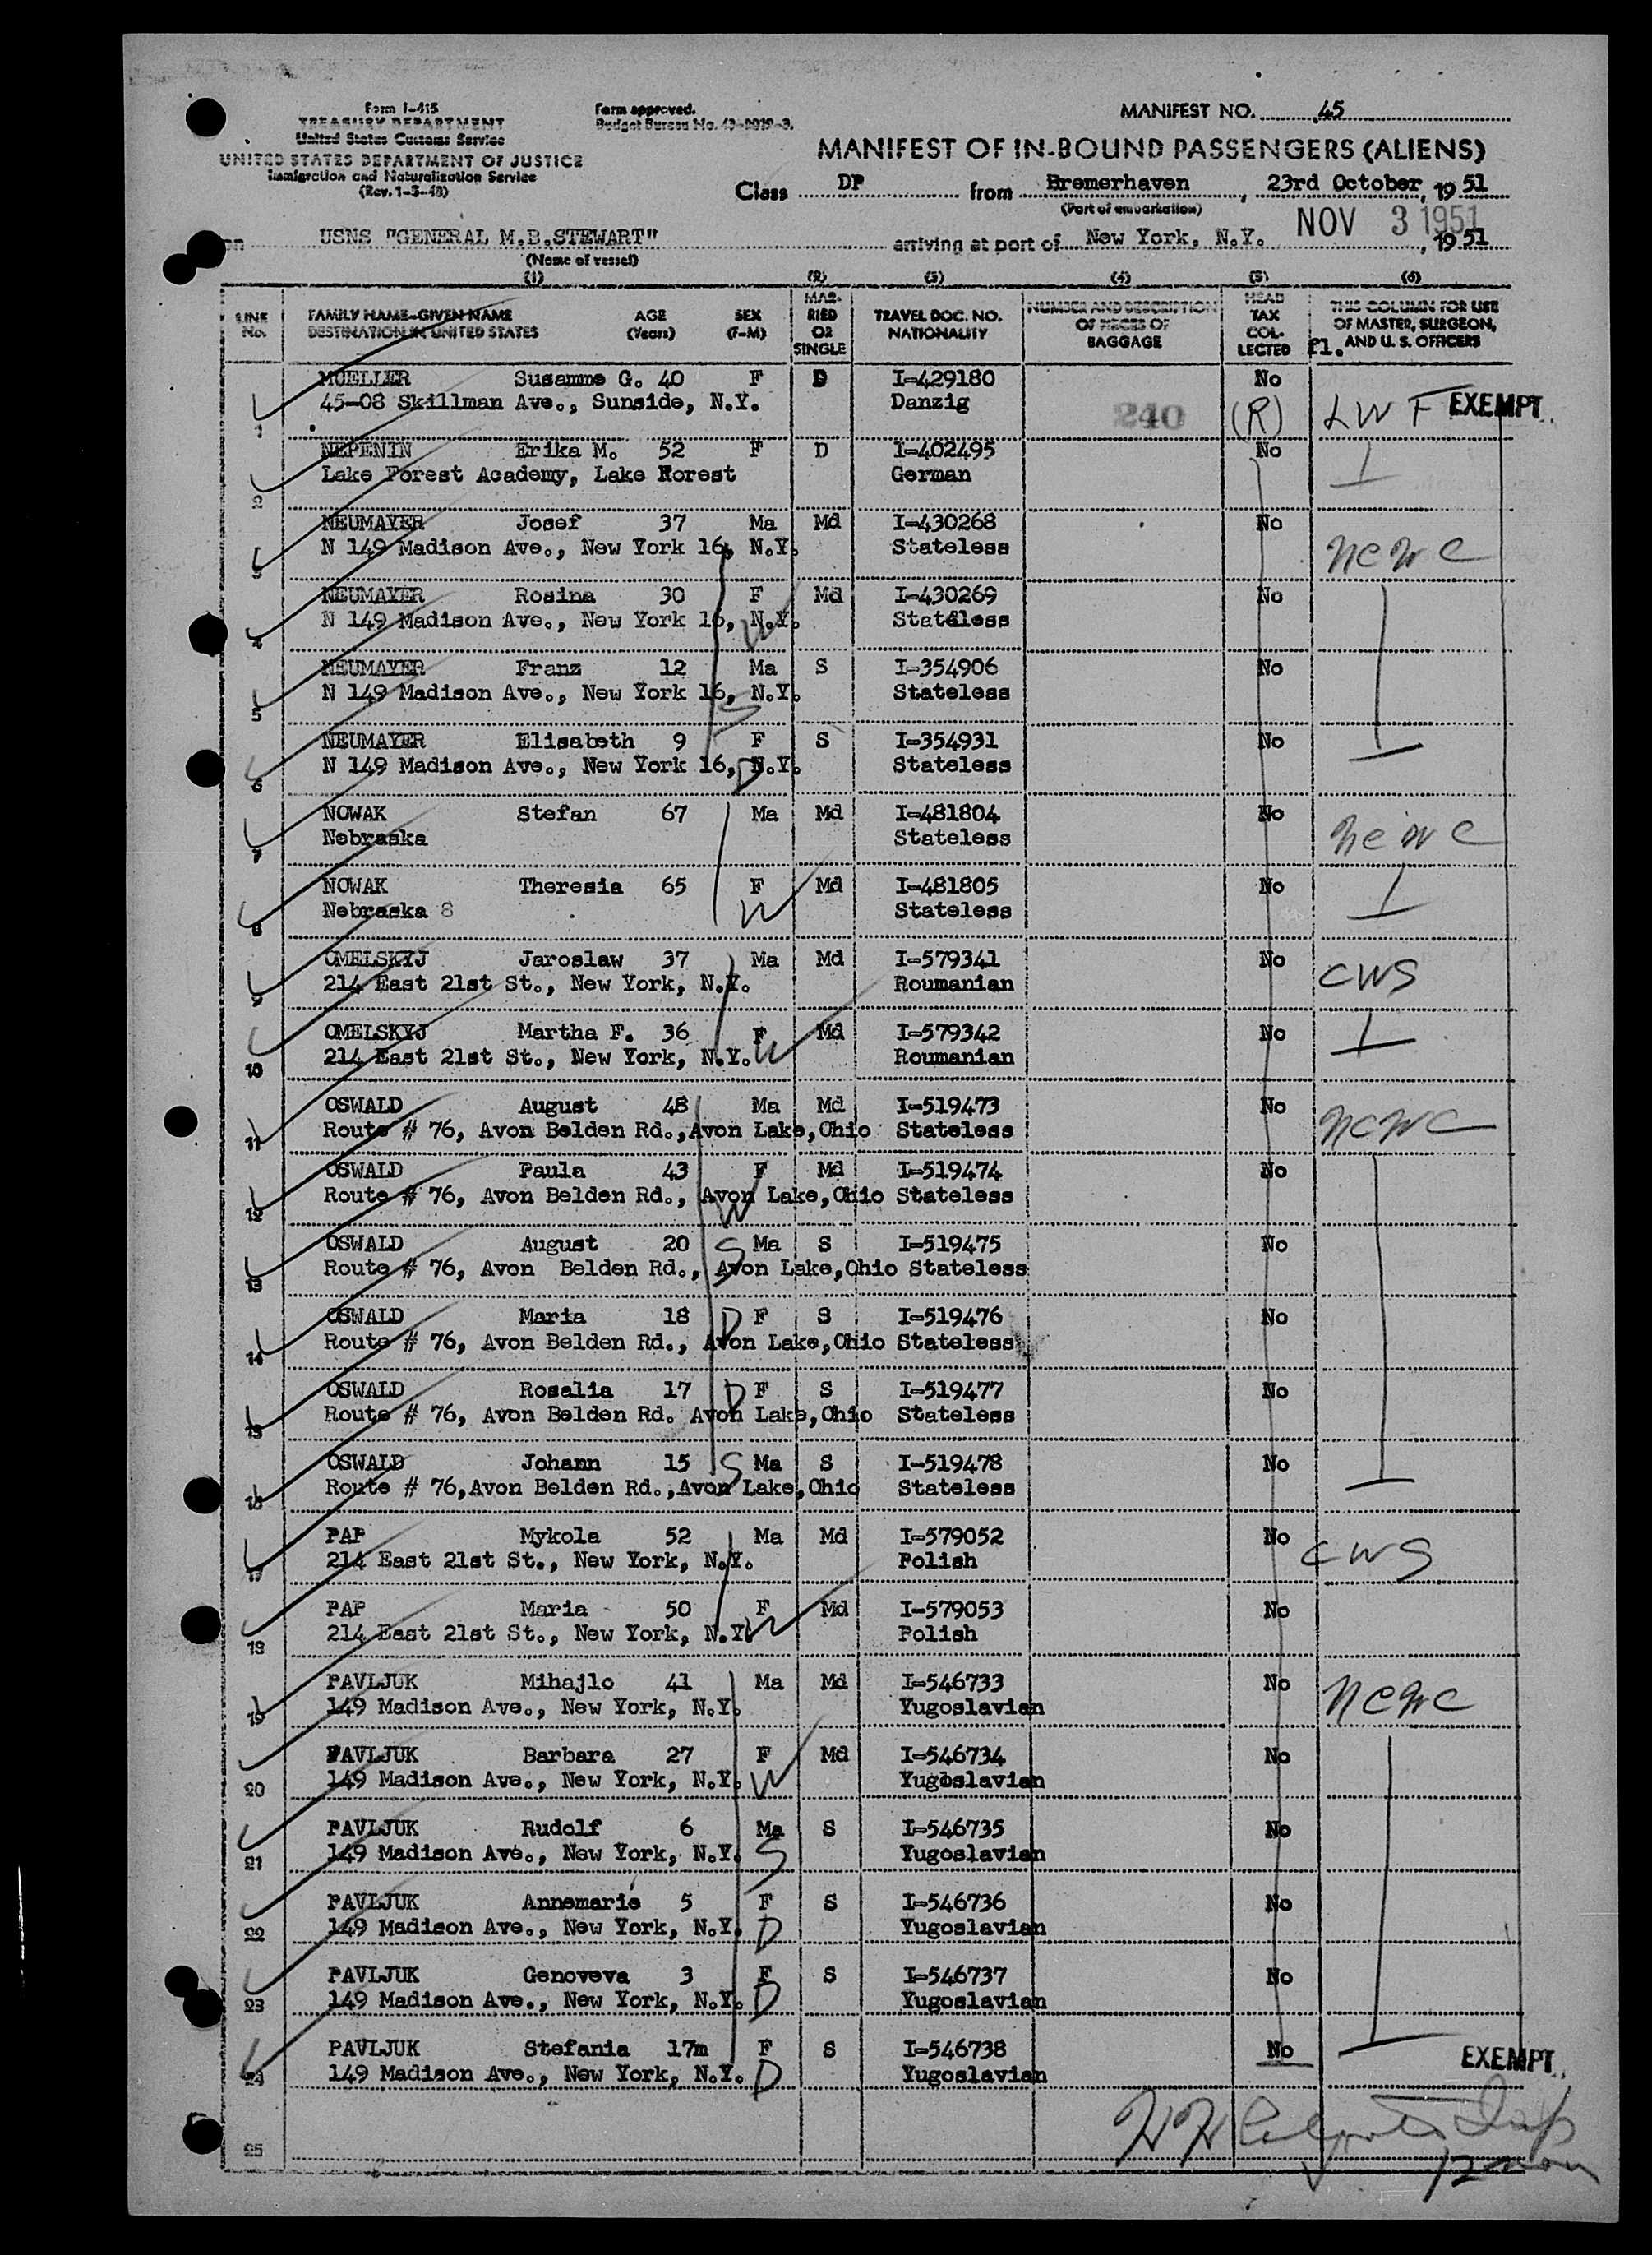 Form I-415
TREASURY DEPARTMENT
United States Customs Service
UNITED STATES DEPARTMENT OF JUSTICE
Immigration and Naturalization Service
(Rev. 1-3-48)
Form approved.
Budget Bureau No. 43-R019-3.
MANIFEST NO. 45
MANIFEST OF IN-BOUND PASSENGERS (ALIENS)
Class DP from Bremerhaven, 23rd October, 19 51
(Port of embarkation)
on USNS "GENERAL M.B.STEWART" arriving at port of New York, N.Y. NOV 3 1951, 19 51
(Name of vessel)
(1) (2) (3) (4) (5) (6)
LINE No. FAMILY NAME-GIVEN NAME DESTINATION IN UNITED STATES AGE (Years) SEX (F-M) MARRIED OR SINGLE TRAVEL DOC. NO. NATIONALITY NUMBER AND DESCRIPTION OF PIECES OF BAGGAGE HEAD TAX COLLECTED THIS COLUMN FOR USE OF MASTER, SURGEON, AND U. S. OFFICERS
fl.
MUELLER Susanne G. 40 F D I-429180 No
1 45-08 Skillman Ave., Sunside, N.Y. Danzig 240 (R) LWF EXEMPT.
NEPENIN Erika M. 52 F D I-402495 No
2 Lake Forest Academy, Lake Rorest German
NEUMAYER Josef 37 Ma Md I-430268 No
3 N 149 Madison Ave., New York 16, N.Y. Stateless NCWC
NEUMAYER Rosina 30 F Md I-430269 No
4 N 149 Madison Ave., New York 16, N.Y. Stateless W
NEUMAYER Franz 12 Ma S I-354906 No
5 N 149 Madison Ave., New York 16, N.Y. Stateless S
NEUMAYER Elisabeth 9 F S I-354931 No
6 N 149 Madison Ave., New York 16, N.Y. Stateless D
NOWAK Stefan 67 Ma Md I-481804 No
7 Nebraska Stateless NCWC
NOWAK Theresia 65 F Md I-481805 No
8 Nebraska 8 W Stateless
OMELSKYJ Jaroslaw 37 Ma Md I-579341 No
9 214 East 21st St., New York, N.Y. Roumanian CWS
OMELSKYJ Martha F. 36 F Md I-579342 No
10 214 East 21st St., New York, N.Y. W Roumanian
OSWALD August 48 Ma Md I-519473 No
11 Route # 76, Avon Belden Rd.,Avon Lake,Ohio Stateless NCWC
OSWALD Paula 43 F Md I-519474 No
12 Route # 76, Avon Belden Rd., Avon Lake,Ohio Stateless W
OSWALD August 20 S Ma S I-519475 No
13 Route # 76, Avon Belden Rd., Avon Lake,Ohio Stateless
OSWALD Maria 18 D F S I-519476 No
14 Route # 76, Avon Belden Rd., Avon Lake,Ohio Stateless
OSWALD Rosalia 17 D F S I-519477 No
15 Route # 76, Avon Belden Rd. Avon Lake,Ohio Stateless
OSWALD Johann 15 S Ma S I-519478 No
16 Route # 76,Avon Belden Rd.,Avon Lake,Ohio Stateless
PAP Mykola 52 Ma Md I-579052 No
17 214 East 21st St., New York, N.Y. Polish CWS
PAP Maria 50 F Md I-579053 No
18 214 East 21st St., New York, N.Y. W Polish
PAVLJUK Mihajlo 41 Ma Md I-546733 No
19 149 Madison Ave., New York, N.Y. Yugoslavian NCWC
PAVLJUK Barbara 27 F Md I-546734 No
20 149 Madison Ave., New York, N.Y. W Yugoslavian
PAVLJUK Rudolf 6 Ma S I-546735 No
21 149 Madison Ave., New York, N.Y. S Yugoslavian
PAVLJUK Annemarie 5 F S I-546736 No
22 149 Madison Ave., New York, N.Y. D Yugoslavian
PAVLJUK Genoveva 3 F S I-546737 No
23 149 Madison Ave., New York, N.Y. D Yugoslavian
PAVLJUK Stefania 17m F S I-546738 No
24 149 Madison Ave., New York, N.Y. D Yugoslavian EXEMPT.
25